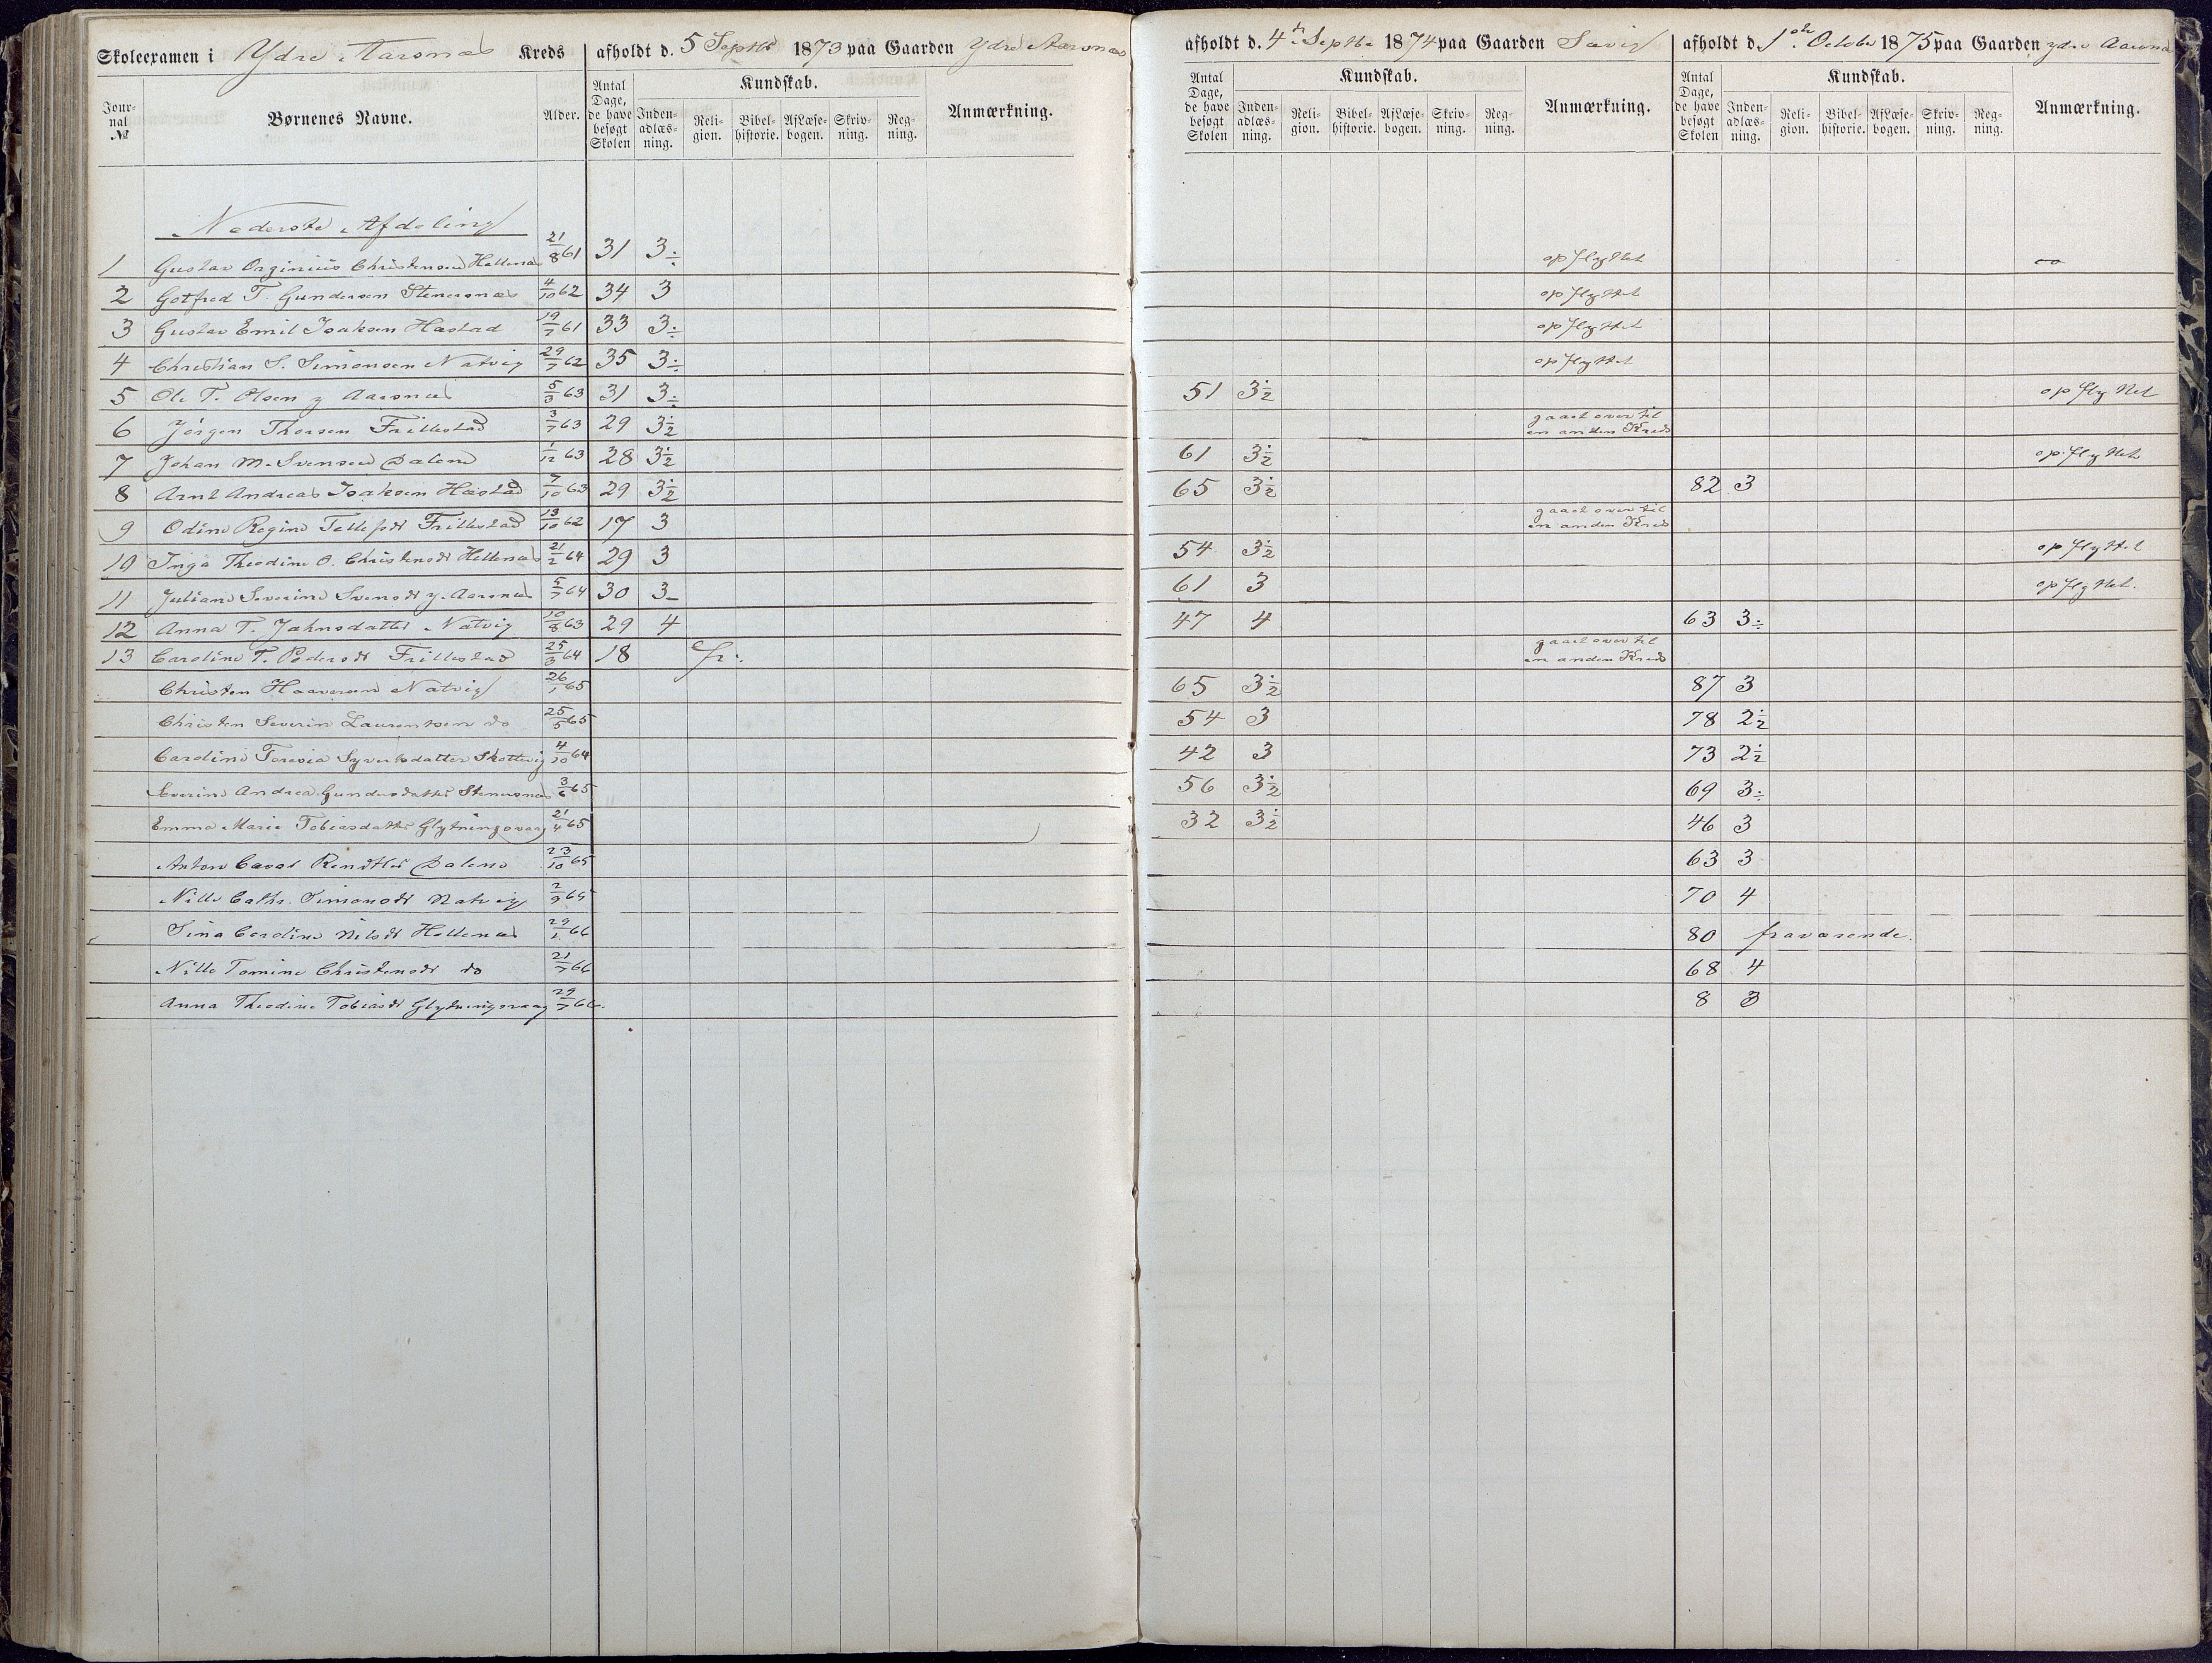 Skoleexamen i Ydre Aarsnæs Kreds afholdt d. 5 Septbr 1873 paa Gaarden Ydre Aarsnæs
afholdt d. 4de Septbr 1874 paa Gaarden Savig afholdt d. 1ste October 1875 paa Gaarden ydre Aarsnæs
Jour-nal № Børnenes Navne. Alder. Antal Dage, de have besøgt Skolen Kundskab. Inden-adlæs-ning. Reli-gion. Bibel-historie. AfLæse-bogen. Skriv-ning. Reg-ning. Anmærkning.
Antal Dage, de have besøgt Skolen Kundskab. Inden-adlæs-ning. Reli-gion. Bibel-historie. AfLæse-bogen. Skriv-ning. Reg-ning. Anmærkning.
Antal Dage, de have besøgt Skolen Kundskab. Inden-adlæs-ning. Reli-gion. Bibel-historie. AfLæse-bogen. Skriv-ning. Reg-ning. Anmærkning.
Nederste Afdeling
1 Gustav Orginius Christensen Hellenæs 21/8 61 31 3÷ opflyttet
2 Gotfred T. Gundersen Stenersnæs 4/10 62 34 3 opflyttet
3 Gustav Emil Isaksen Hæstad 19/7 61 33 3÷ opflyttet
4 Christian S. Simonsen Natvig 29/7 62 35 3÷ opflyttet
5 Ole T. Olsen y Aarsnæs 5/3 63 31 3÷ 51 3½ opflyttet
6 Jörgen Thorsen Frillestad 3/7 63 29 3½ gaaet over til en anden Kreds
7 Johan M. Svensen Dalene 1/12 63 28 3½ 61 3½ opflyttet
8 Arnt Andreas Isaksen Hæstad 7/10 63 29 3½ 65 3½ 82 3
9 Odine Regine Tellefsdt Frillestad 13/10 62 17 3 gaaet over til en anden Kreds
10 Inga Theodine O. Christensdt Hellenæs 21/2 64 29 3 54 3½ opflyttet
11 Juliane Severine Svensdt y. Aarsnæs 5/7 64 30 3- 61 3 opflyttet.
12 Anna T. Jahnsdatter Natvig 10/8 63 29 4 47 4 63 3÷
13 Caroline T. Pedersdt Frillestad 25/3 64 18 fr: gaaet over til en anden Kreds
Christen Haaversen Natvig 26/1 65 65 3½ 87 3
Christen Severin Laurentsen do 25/5 65 54 3 78 2½
Caroline Teresia Syvertsdatter Skottevig 4/10 64 42 3 73 2½
Severine Andrea Gundersdatter Stenersnæs 3/6 65 56 3½ 69 3÷
Emma Marie Tobiasdatter Glytningsvaag 21/4 65 32 3½ 46 3
Anton Dalene 23/10 65 63 3
Nille Cathr. Simonsdt Natvig 2/9 65 70 4
Sina Caroline Nilsdt Hellenæs 29/1 66 80 fraværende.
Nille Tomine Christensdt do 21/7 66 68 4
Anna Theodine Tobiasdt Glytningsvaag 29/7 66. 8 3